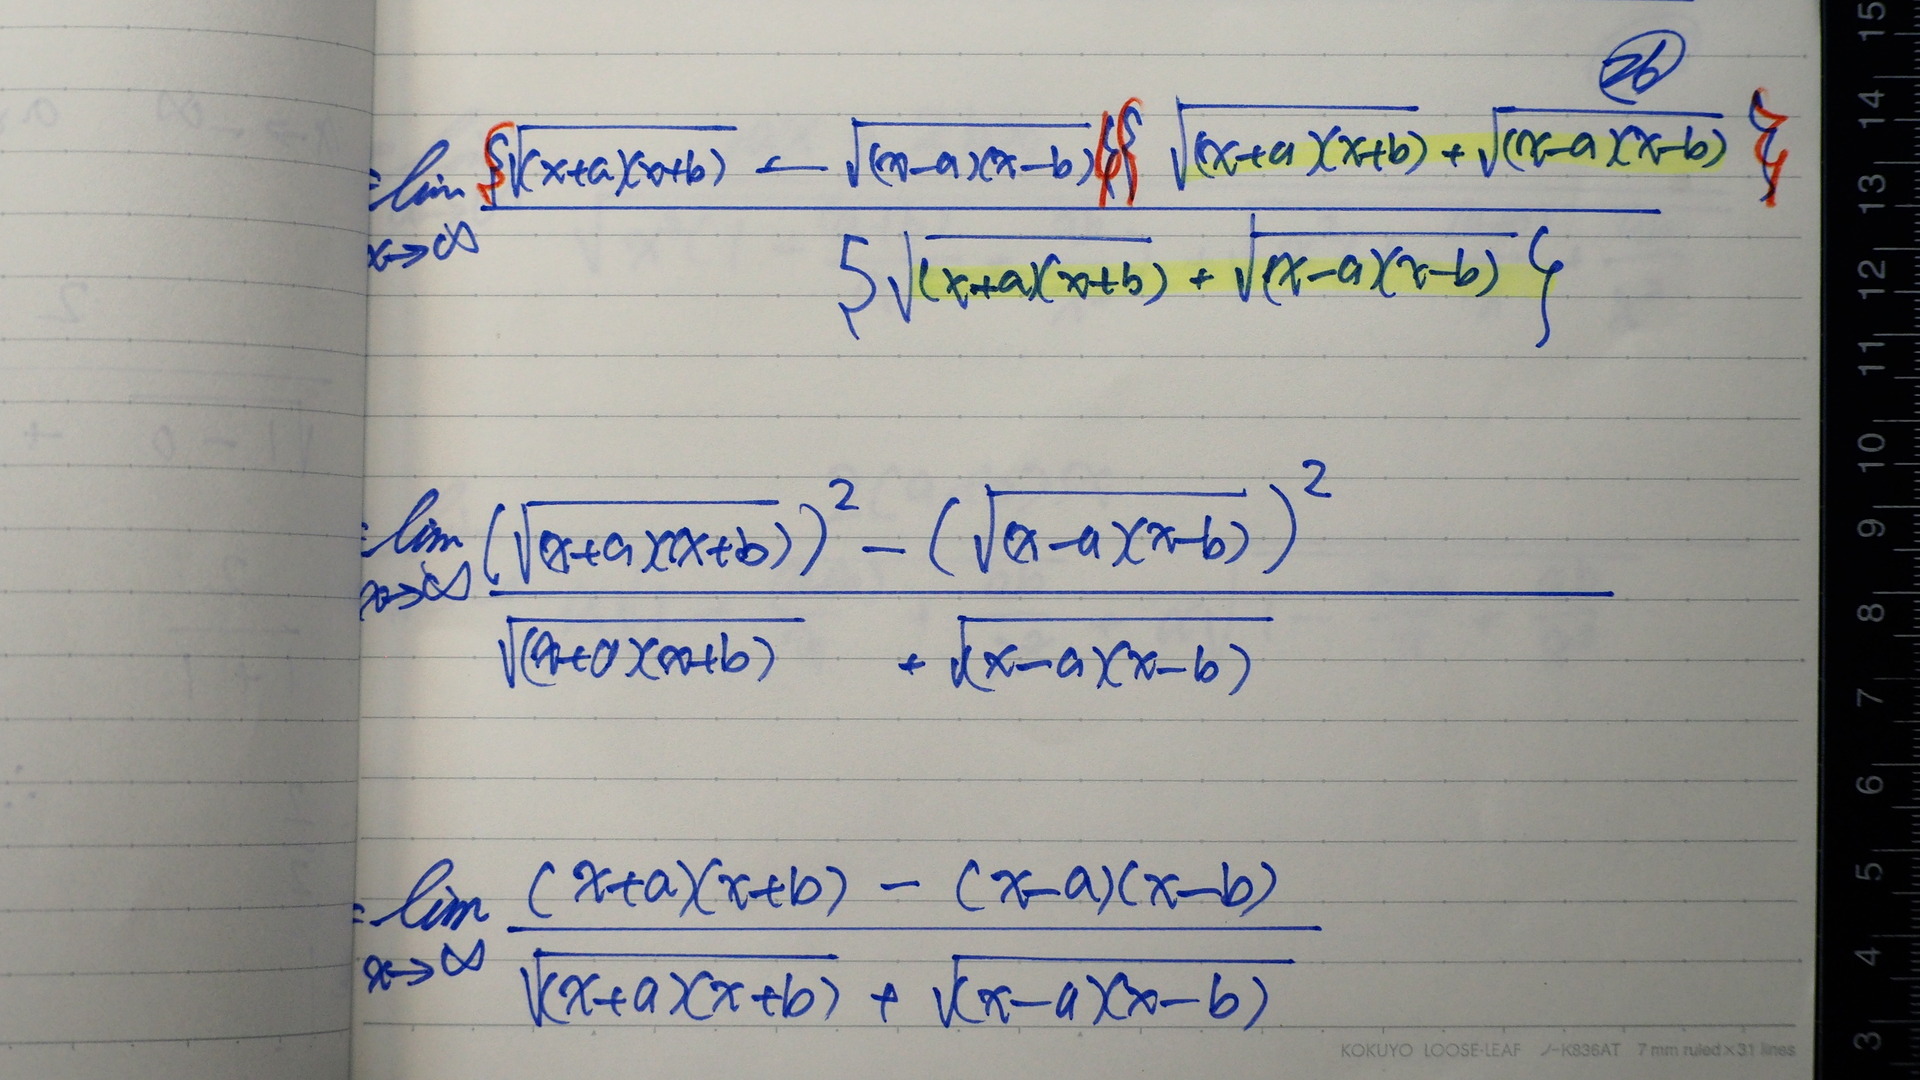 26
= lim {√(x+a)(x+b) - √(x-a)(x-b)}{√(x+a)(x+b) + √(x-a)(x-b)}
x→∞ {√(x+a)(x+b) + √(x-a)(x-b)}
= lim (√(x+a)(x+b))² - (√(x-a)(x-b))²
x→∞ √(x+a)(x+b) + √(x-a)(x-b)
= lim (x+a)(x+b) - (x-a)(x-b)
x→∞ √(x+a)(x+b) + √(x-a)(x-b)
KOKUYO LOOSE-LEAF ノ-K836AT 7 mm ruled×31 lines
15
14
13
12
11
10
9
8
7
6
5
4
3